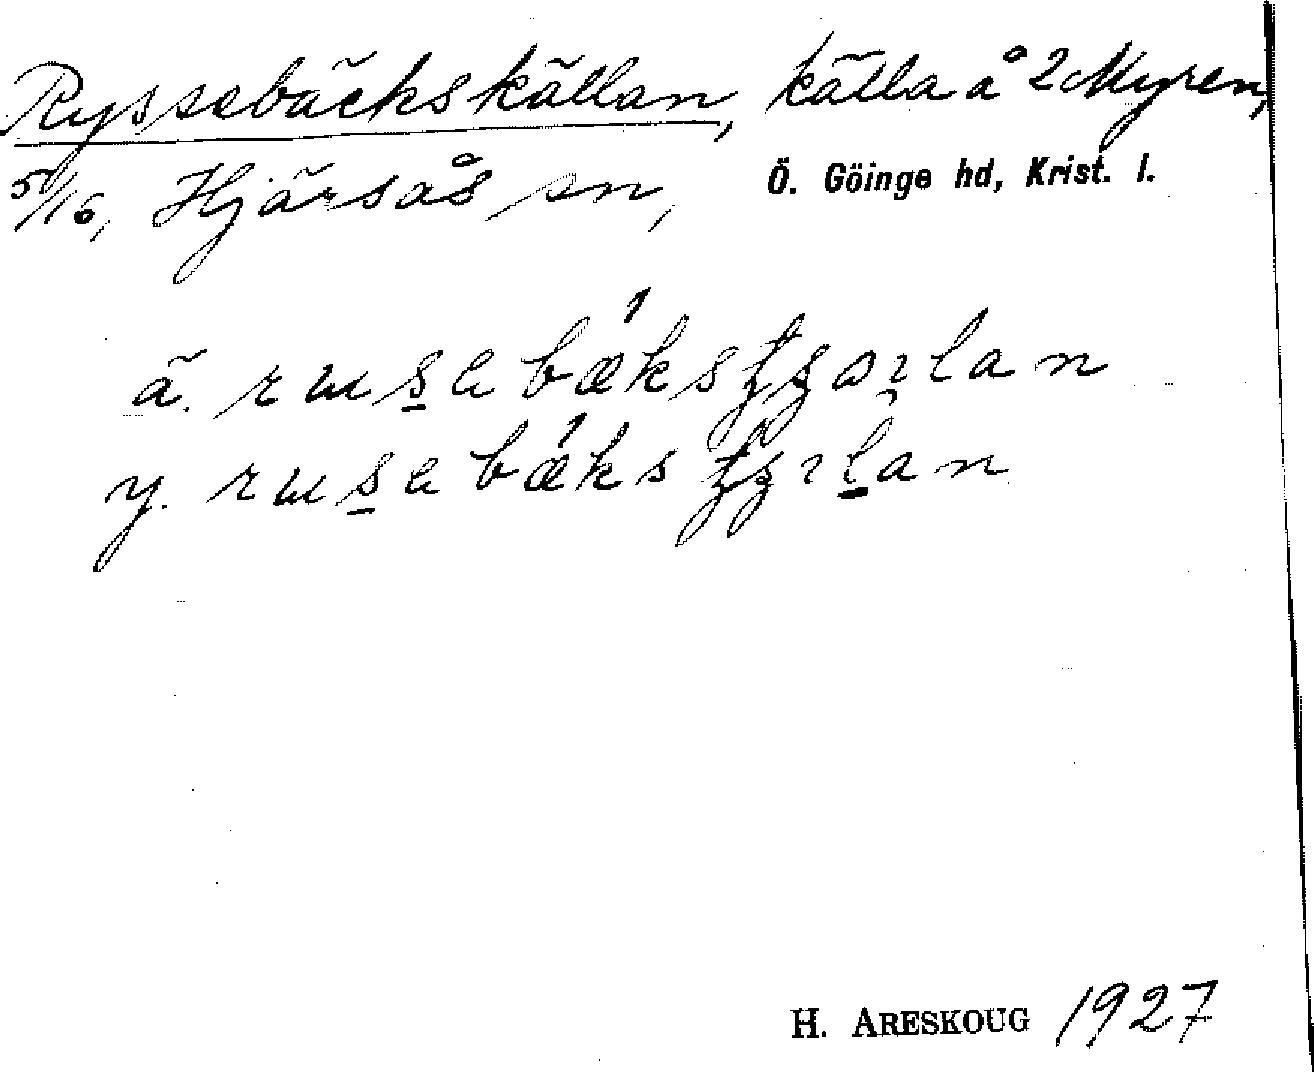 Ryssebäckskällan, källa å 2 Myren,
5/16, Hjärsås sn, Ö. Göinge hd, Krist. l.
ä.
y.
H. ARESKOUG 1927